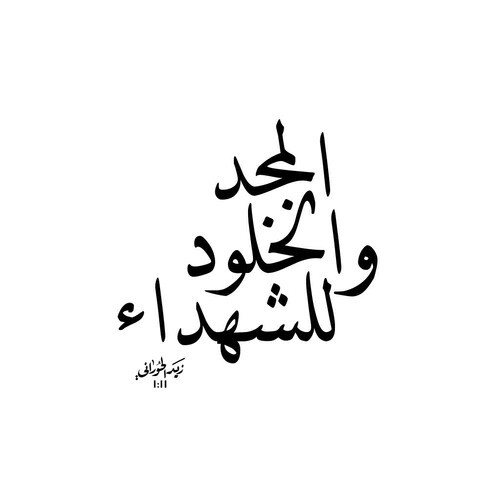 المجد
والخلود
للشهداء
زيد الحوراني
١:١١